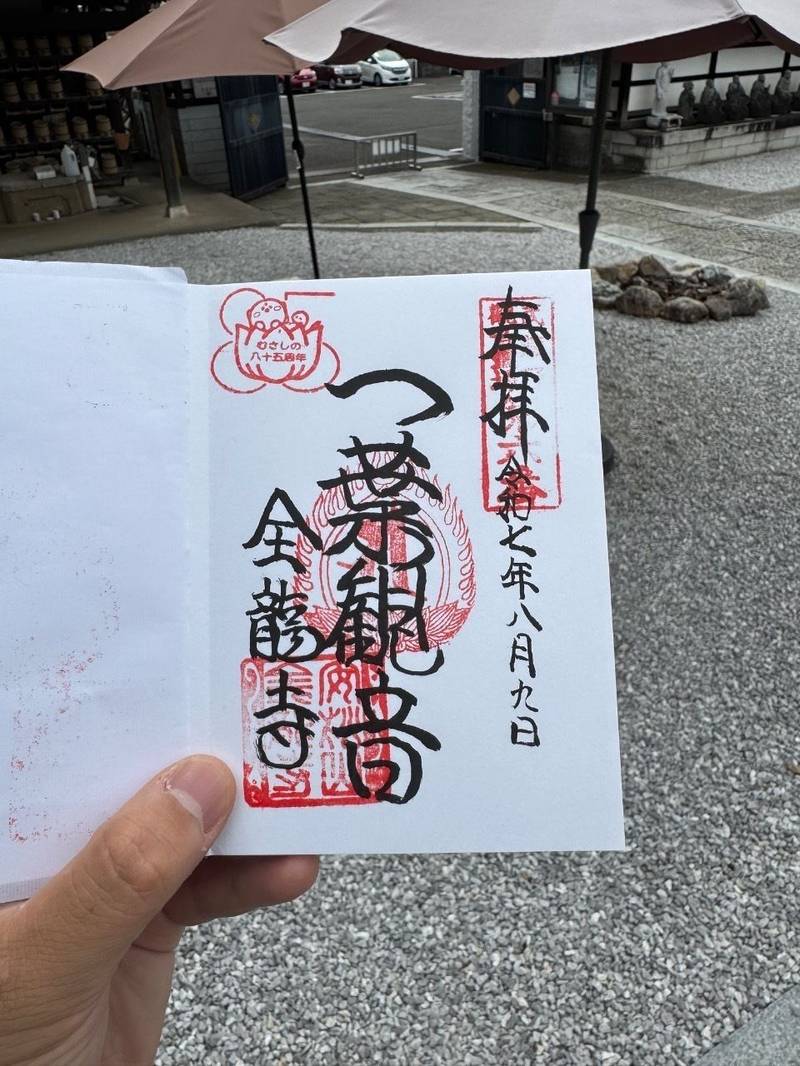 奉拝
令和七年八月九日
一葉観音
全龍寺
むさしの
八十五周年